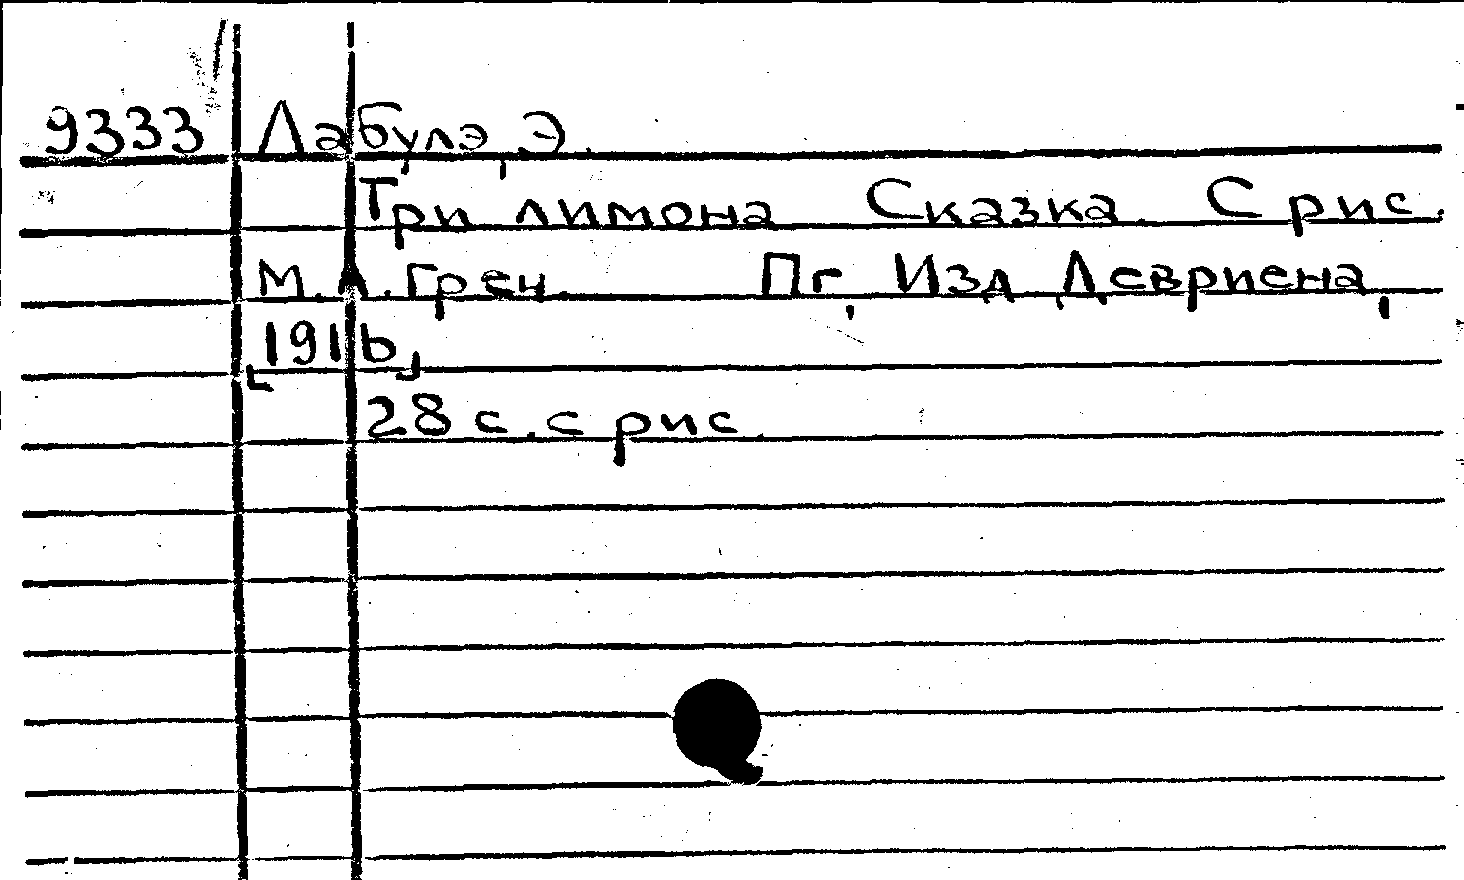 9333 Лабулэ, Э.
Три лимона Сказка. С рис.
М.А. Греч. Пг, Изд Девриена,
[1916]
28 с. с рис.